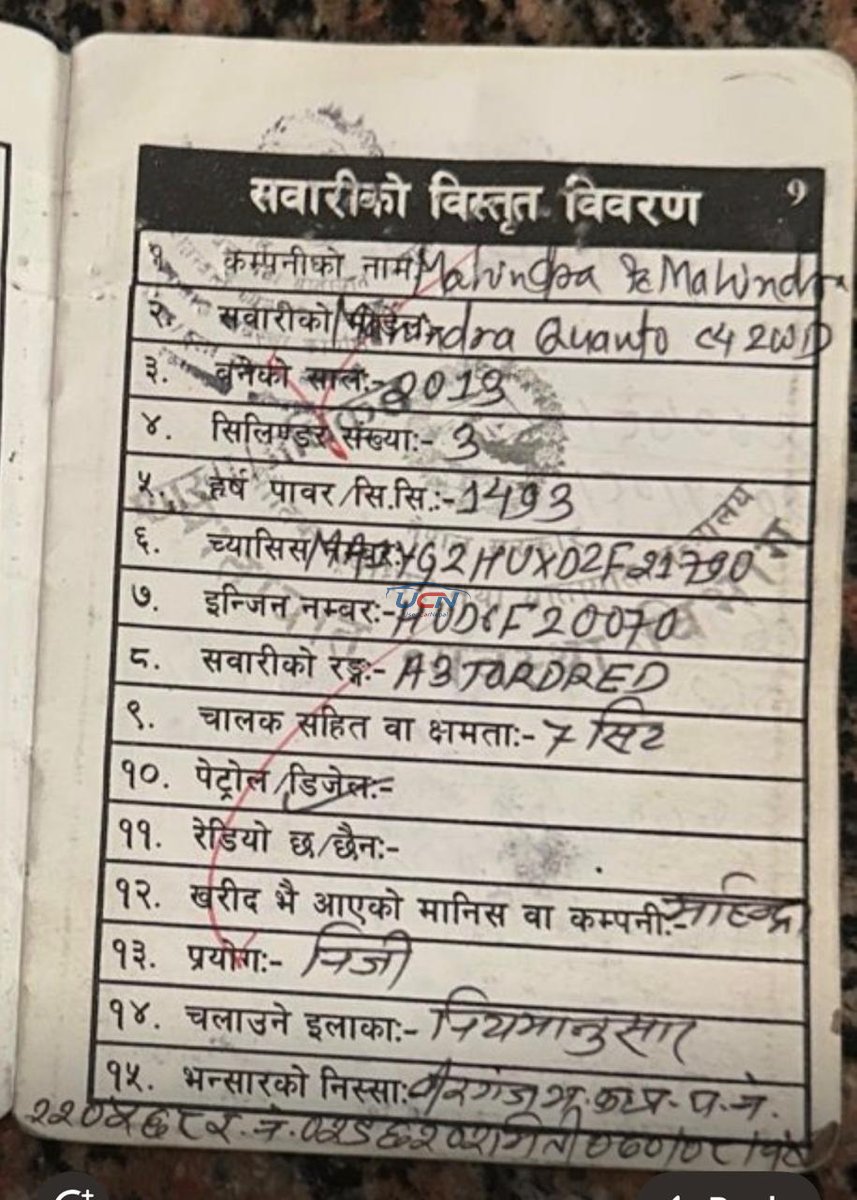 सवारीको विस्तृत विवरण ९
१. कम्पनीको नाम Mahindra & Mahindra
२. सवारीको मोडेल:- Mahindra Quanto C4 2WD
३. बनेको साल:- 2013
४. सिलिण्डर संख्या:- 3
५. हर्ष पावर/सि.सि.:- 1493
६. च्यासिस नम्बर:- MA1YG2HUXD2F21790
७. इन्जिन नम्बर:- HUD6F20070
UCN
८. सवारीको रङ्ग:- A3 TORDRED
९. चालक सहित वा क्षमता:- 7 सिट
१०. पेट्रोल/डिजेल:-
११. रेडियो छ/छैन:-
१२. खरीद भै आएको मानिस वा कम्पनी:- महिन्द्रा
१३. प्रयोग:- निजी
१४. चलाउने इलाका:- नियमानुसार
१५. भन्सारको निस्सा: वीरगंज भ. का. प्र. प. नं.